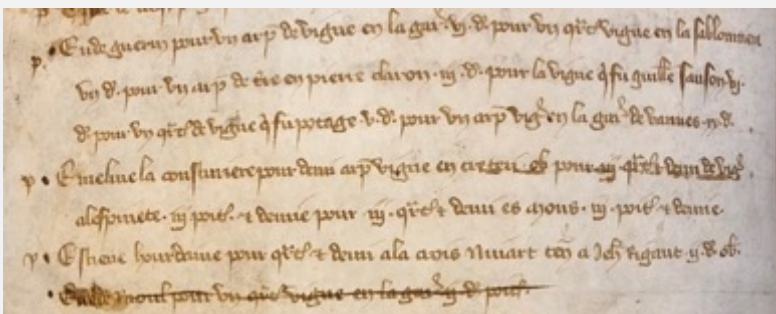 p. • Eude guerin pour vn arp̃ de vigne en la gar̃. vj. d̃. pour vn qͬt̃ vigne en la sablonniere
vn d̃. pour vn arp̃ de t̃re en pierre claron. iij. d̃. pour la vigne q̃ fu guille sanson. vj.
d̃. pour vn qͬt̃ de vigne q̃ fu potage. v. d̃. pour vn arp̃ vig̃ en la gar̃ de vannes. ij. d̃.
p • Emeline la cousturiere pour demi arp̃ vigne en pour iij qͬt̃ & demi de vig̃
alespinete. iij poit̃. & demie pour. iij. qͬt̃ & demi es mons. iij. poit̃ & demie.
p • Estiene hourdaine pour qͬt̃ & demi ala crois ten̄ a Jeh̃ rigaut. ij. d̃. ob̃.
• pour vn qͬt̃ vigne en la gar̃. ij. d̃. poit̃.